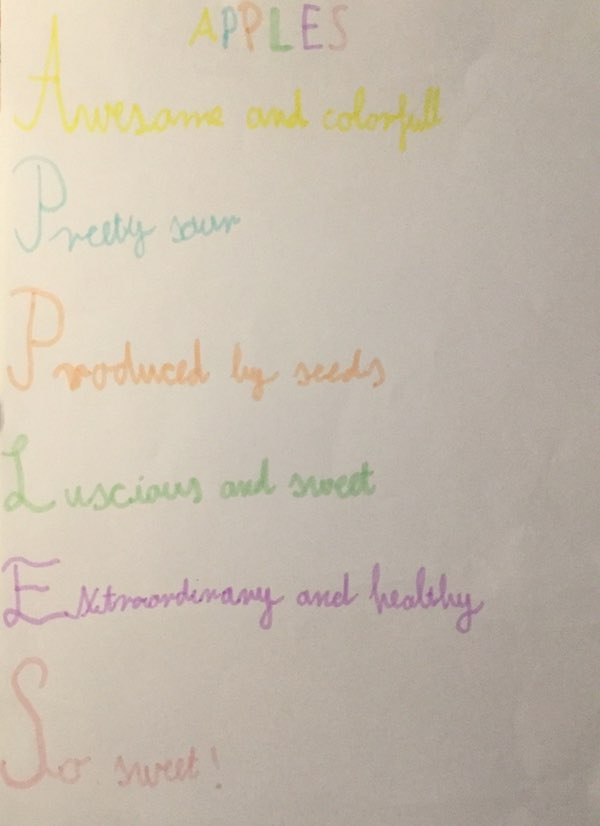 APPLES
Awesome and colorfull
Preety sour
Produced by seeds
Luscious and sweet
Extraordinary and healthy
So sweet!